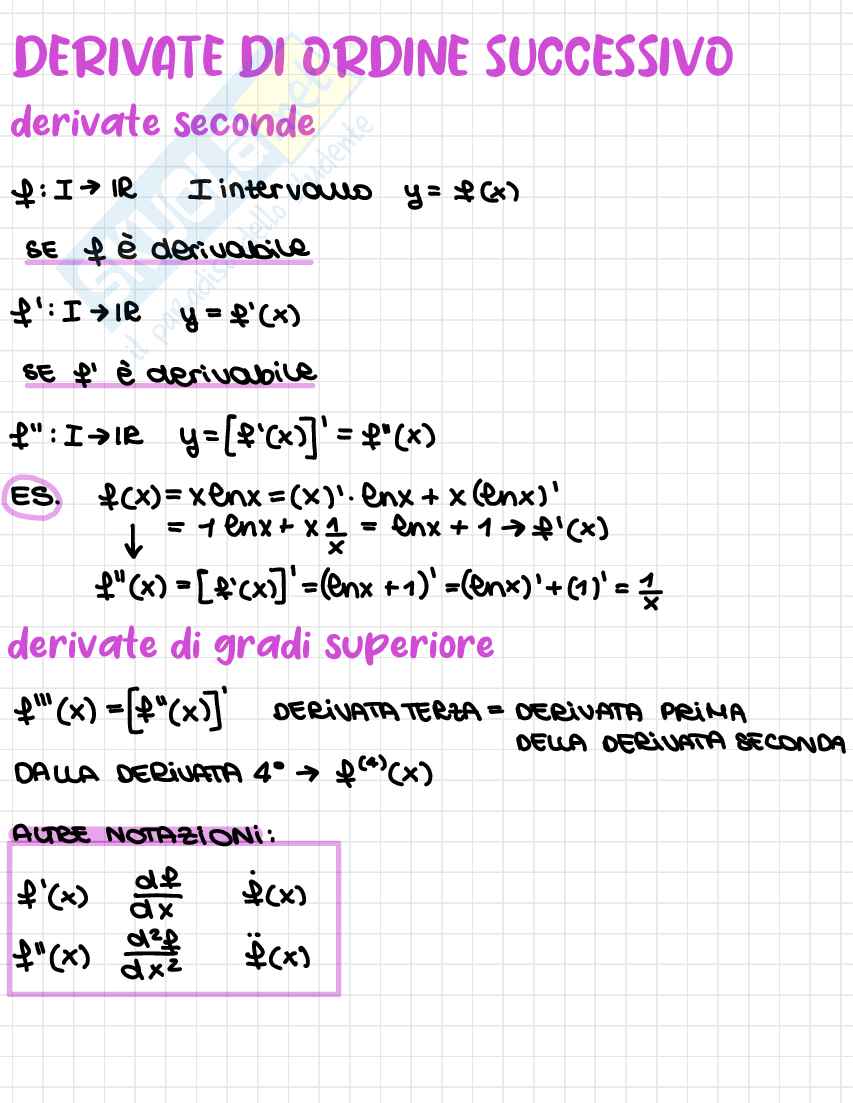 DERIVATE DI ORDINE SUCCESSIVO
derivate seconde
f: I → IR   I intervallo   y = f(x)
SE f è derivabile
f': I → IR   y = f'(x)
SE f' è derivabile
f'': I → IR   y = [f'(x)]' = f''(x)
ES. f(x) = x lnx = (x)' · lnx + x (lnx)'
= 1 lnx + x 1/x = lnx + 1 → f'(x)
↓
f''(x) = [f'(x)]' = (lnx + 1)' = (lnx)' + (1)' = 1/x
derivate di gradi superiore
f'''(x) = [f''(x)]'   DERIVATA TERZA = DERIVATA PRIMA
DELLA DERIVATA SECONDA
DALLA DERIVATA 4° → f⁽⁴⁾(x)
ALTRE NOTAZIONI:
f'(x)   df/dx   ḟ(x)
f''(x)   d²f/dx²   f̈(x)
SKUOLA.net
il paradiso dello studente